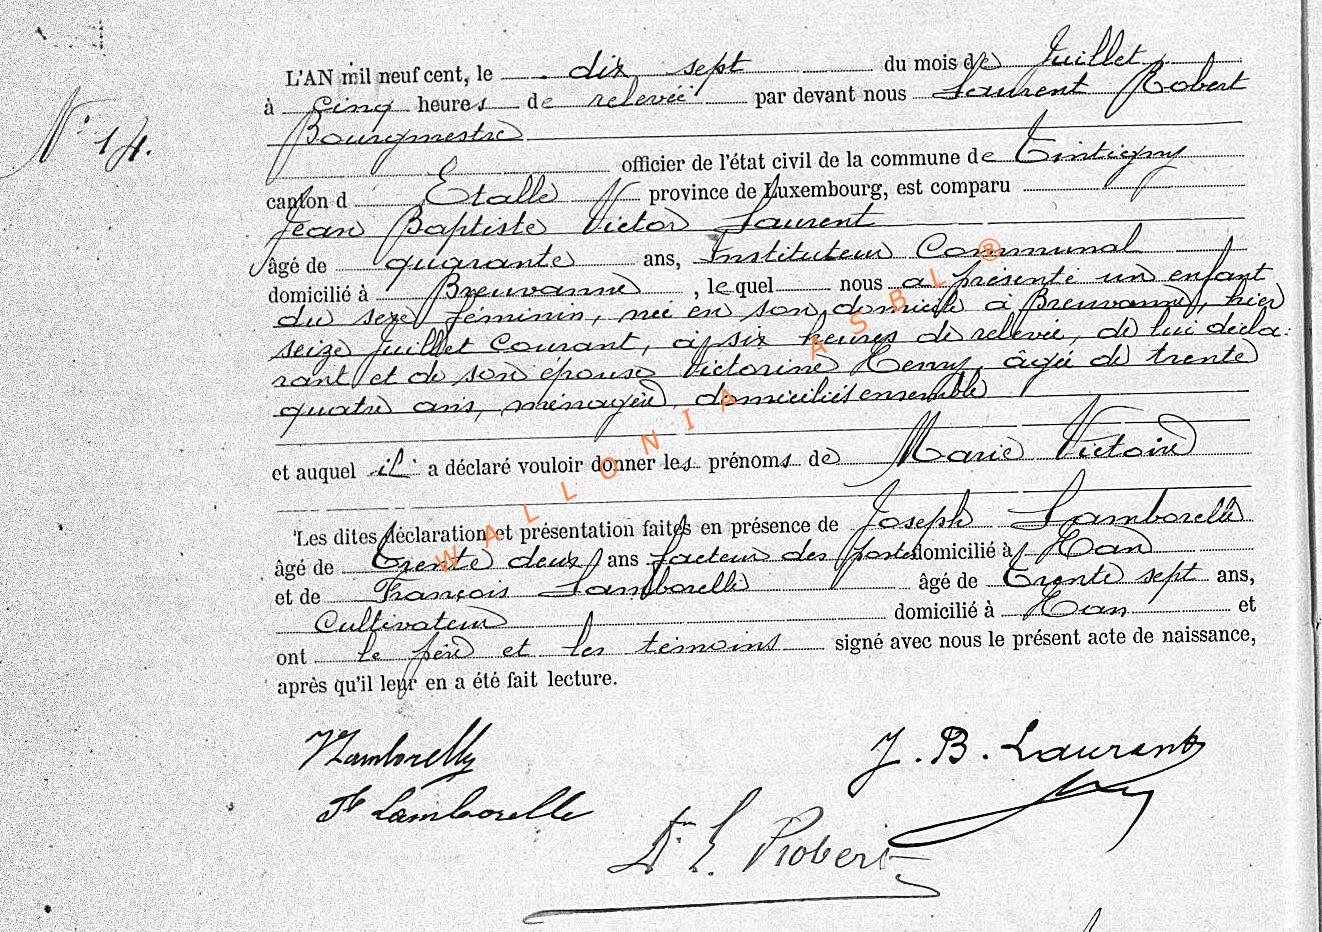 L'AN mil neuf cent, le dix sept du mois de Juillet
à Cinq heures de relevée par devant nous Laurent Robert
N° 14.
Bourgmestre
officier de l'état civil de la commune de Tintigny
canton d Etalle province de Luxembourg, est comparu
Jean Baptiste Victor Laurent
âgé de quarante ans, Instituteur Communal
domicilié à Breuvanne, le quel nous a présenté un enfant
du sexe féminin, née en son domicile à Breuvanne, hier
seize Juillet Courant, à six heures de relevée, de lui décla-
rant et de son épouse Victorine Henry, âgée de trente
quatre ans, ménagère, domiciliés ensemble
et auquel il a déclaré vouloir donner les prénoms de Marie Victoire
Les dites déclaration et présentation faites en présence de Joseph Lamborelle
âgé de Trente deux ans facteur des postes domicilié à Han
et de François Lamborelle âgé de Trente sept ans,
Cultivateur domicilié à Han et
ont le père et les témoins signé avec nous le présent acte de naissance,
après qu'il leur en a été fait lecture.
Lamborelle
J. B. Laurent
Lamborelle
Dr L. Robert
WALLONIA ASBL ®